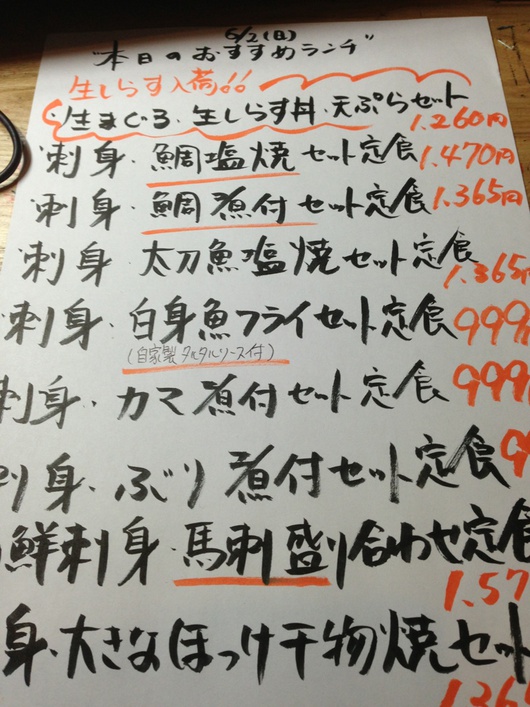 6/2(日)
"本日のおすすめランチ"
生しらす入荷!!
・生まぐろ・生しらす丼・天ぷらセット 1.260円
・刺身・鯛塩焼セット定食 1.470円
・刺身・鯛煮付セット定食 1.365円
・刺身 太刀魚塩焼セット定食 1.365円
・刺身・白身魚フライセット定食 999
(自家製タルタルソース付)
刺身・カマ煮付セット定食 999
刺身・ぶり煮付セット定食
鮮刺身・馬刺盛り合わせ定食
1.57
身・大きなほっけ干物焼セット